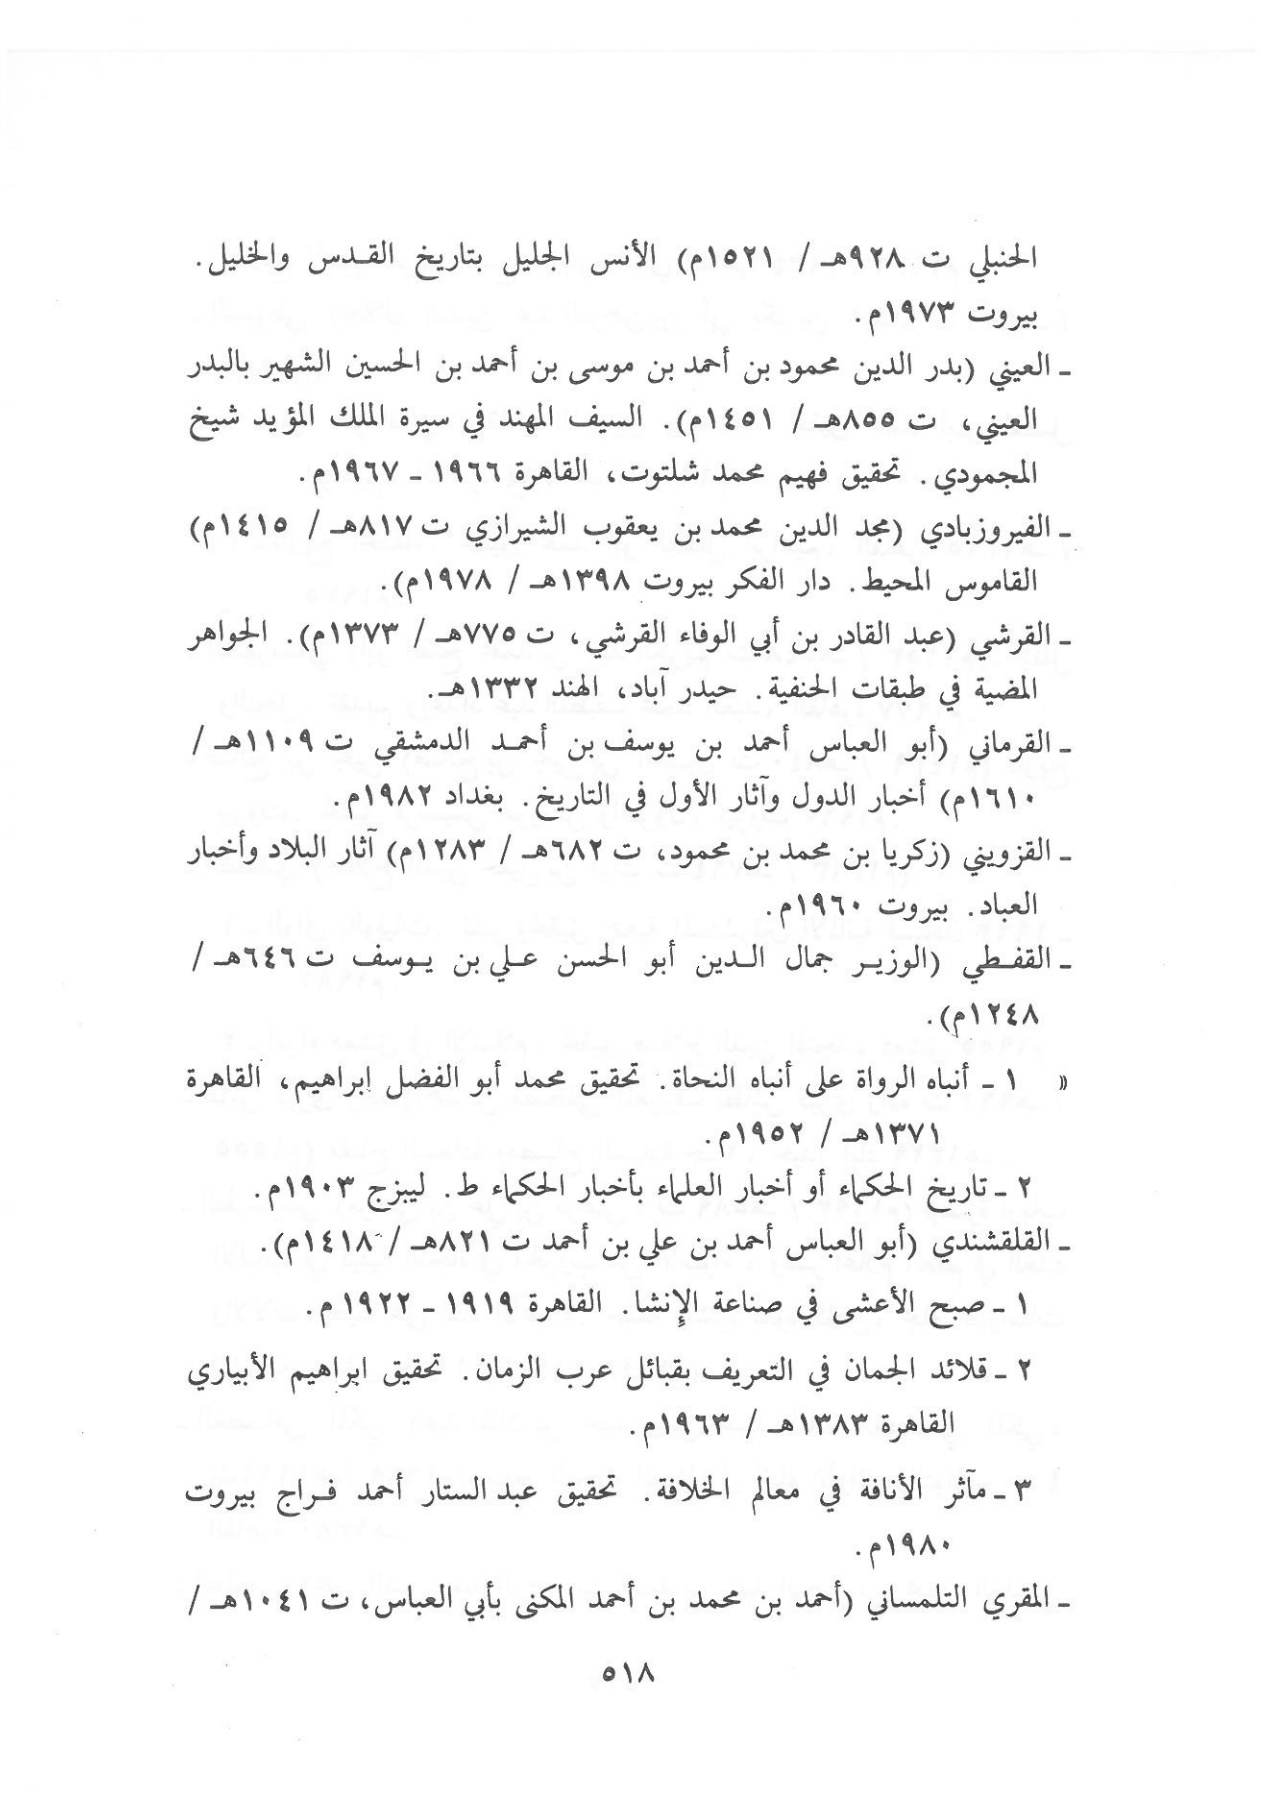 الحنبلي ت ٩٢٨هـ / ١٥٢١م) الأنس الجليل بتاريخ القدس والخليل.
بيروت ١٩٧٣م.
ـ العيني (بدر الدين محمود بن أحمد بن موسى بن أحمد بن الحسين الشهير بالبدر
العيني، ت ٨٥٥هـ / ١٤٥١م). السيف المهند في سيرة الملك المؤيد شيخ
المجمودي. تحقيق فهيم محمد شلتوت، القاهرة ١٩٦٦ ـ ١٩٦٧م.
ـ الفيروزبادي (مجد الدين محمد بن يعقوب الشيرازي ت ٨١٧هـ / ١٤١٥م)
القاموس المحيط. دار الفكر بيروت ١٣٩٨هـ / ١٩٧٨م).
ـ القرشي (عبد القادر بن أبي الوفاء القرشي، ت ٧٧٥هـ / ١٣٧٣م). الجواهر
المضية في طبقات الحنفية. حيدر آباد، الهند ١٣٣٢هـ.
ـ القرماني (أبو العباس أحمد بن يوسف بن أحمد الدمشقي ت ١١٠٩هـ /
١٦١٠م) أخبار الدول وآثار الأول في التاريخ. بغداد ١٩٨٢م.
ـ القزويني (زكريا بن محمد بن محمود، ت ٦٨٢هـ / ١٢٨٣م) آثار البلاد وأخبار
العباد. بيروت ١٩٦٠م.
ـ القفطي (الوزير جمال الدين أبو الحسن علي بن يوسف ت ٦٤٦هـ /
١٢٤٨م).
« ١ ـ أنباه الرواة على أنباه النحاة. تحقيق محمد أبو الفضل إبراهيم، القاهرة
١٣٧١هـ / ١٩٥٢م.
٢ ـ تاريخ الحكماء أو أخبار العلماء بأخبار الحكماء ط. ليبزج ١٩٠٣م.
ـ القلقشندي (أبو العباس أحمد بن علي بن أحمد ت ٨٢١هـ / ١٤١٨م).
١ ـ صبح الأعشى في صناعة الإنشا. القاهرة ١٩١٩ ـ ١٩٢٢م.
٢ ـ قلائد الجمان في التعريف بقبائل عرب الزمان. تحقيق ابراهيم الأبياري
القاهرة ١٣٨٣هـ / ١٩٦٣م.
٣ ـ مآثر الأنافة في معالم الخلافة. تحقيق عبد الستار أحمد فراج بيروت
١٩٨٠م.
ـ المقري التلمساني (أحمد بن محمد بن أحمد المكنى بأبي العباس، ت ١٠٤١هـ /
٥١٨